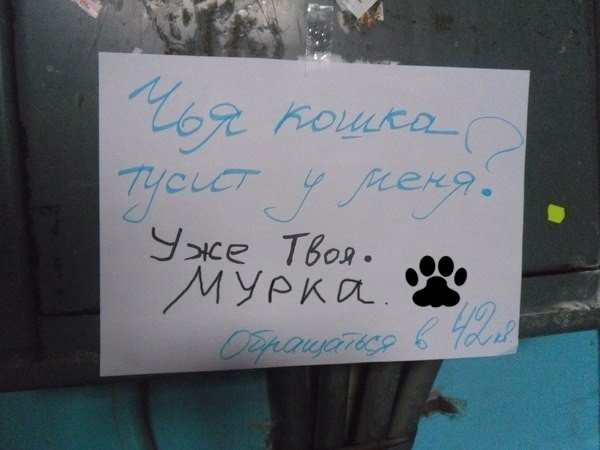 Чья кошка
тусит у меня?
Уже Твоя.
МУРКА.
Обращаться в 42 кв.